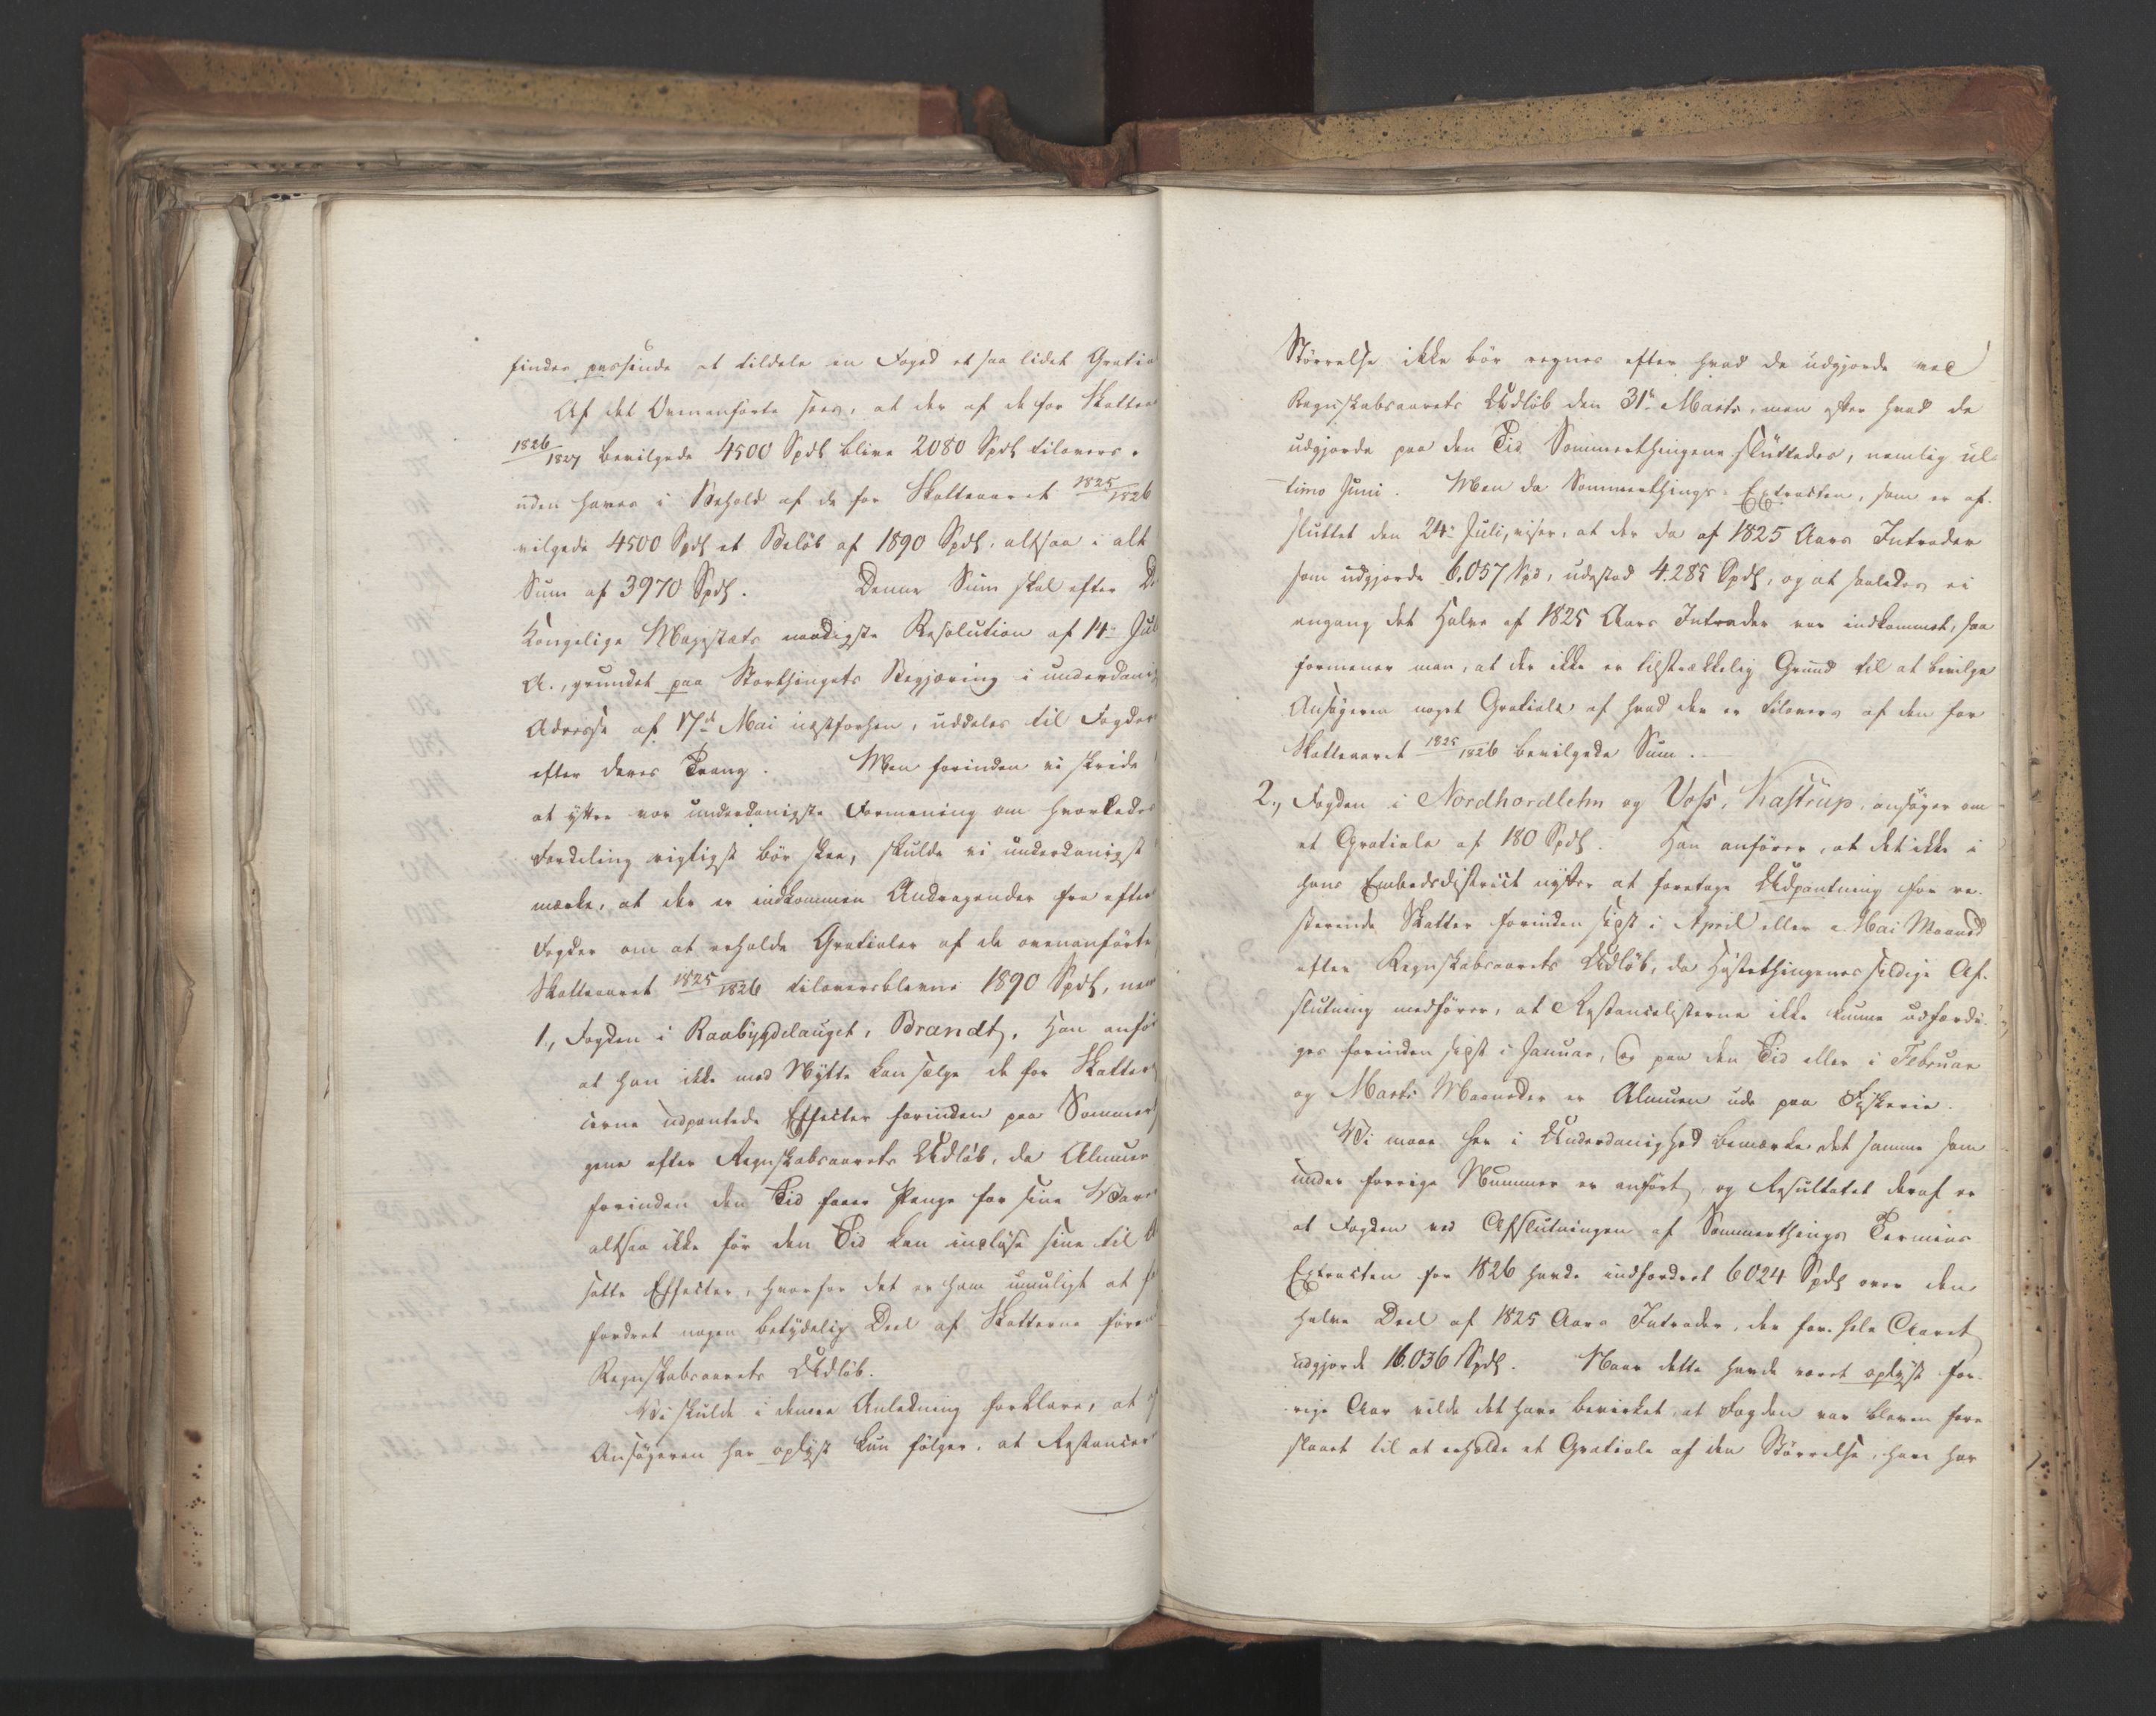 finder passende at tildele en Foged et saa lidet Gratia
Af det Ovenanførte sees, at der af de for Skatteaa
1826/1827 bevilgede 4500 Spdl blive 2080 Spdl tilovers.
uden haves i Behold af de for Skatteaaret 1825/1826
vilgede 4500 Spdl et Beløb af 1890 Spdl, altsaa i alt
Sum af 3970 Spdl. Denne Sum skal efter De
Kongelige Majestæts naadigste Resolution af 14de Jul
A., grundet paa Storthingets Begjæring i underdanig
Adresse af 17de Mai næstforhen, uddeles til Fogder
efter deres Trang. Men forinden vi skride
at yttre vor underdanigste Formening om hvorledes
Fordeling rigtigst bør skee, skulde vi underdanigst
mærke, at der er indkommen Andragender fra efter
Fogder om at erholde Gratialer af de ovenanførte
Skatteaaret 1825/1826 tiloversblevne 1890 Spdl, nem
1., Fogden i Raabygdelauget, Brandt. Han anfø
at han ikke med Nytte kan sælge de for Skatter
cerne udpantede Effecter forinden paa Sommerth
gene efter Regnskabsaarets Udløb, da Almuen
forinden den Tid faaer Penge for sine Vare
altsaa ikke før den Tid kan indløse sine til U
satte Effecter, hvorfor det er ham umuligt at
fordret nogen betydelig Deel af Skatterne føren
Regnskabsaarets Udløb.
Vi skulde i denne Anledning forklare, at af
Ansøgeren har oplyst kun følger, at Restancer
Størrelse ikke bør regnes efter hvad de udgjorde ved
Regnskabsaarets Udløb den 31te Marts, men efter hvad de
udgjorde paa den Tid Sommerthingene sluttedes, nemlig ul-
timo Juni. Men da Sommerthings-Extracten, som er af-
sluttet den 24de Juli, viser, at der da af 1825 Aars Intrader
som udgjorde 6.057 Spd, udestod 4.285 Spdl, og at saaledes ei
engang det Halve af 1825 Aars Intrader var indkommet, saa
formener man, at der ikke er tilstrækkelig Grund til at bevilge
Ansøgeren noget Gratiale af hvad der er tilovers af den for
Skatteaaret 1825/1826 bevilgede Sum.
2., Fogden i Nordhordlehn og Voss, Kastrup, ansøger om
et Gratiale af 180 Spdl. Han anfører, at det ikke i
hans Embedsdistrict nytter at foretage Udpantning for re-
sterende Skatter forinden sidst i April eller Mai Maaned
efter Regnskabsaarets Udløb, da Høstethingenes sildige Af-
slutning medfører, at Restancelisterne ikke kunne udfærdi-
ges forinden sidst i Januar, og paa den Tid eller i Februar
og Marts Maaneder er Almuen ude paa Fiskerie.
Vi maae her i Underdanighed bemærke det samme som
under forrige Nummer er anført, og Resultatet deraf er
at Fogden ved Afslutningen af Sommerthings Termins
Extracten for 1826 havde indfordret 6024 Spdl over den
halve Deel af 1825 Aars Intrader, der for hele Aaret
udgjorde 16.036 Spdl. Naar dette havde været oplyst for-
rige Aar vilde det have bevirket, at Fogden var bleven fore-
slaaet til at erholde et Gratiale af den Størrelse, han har